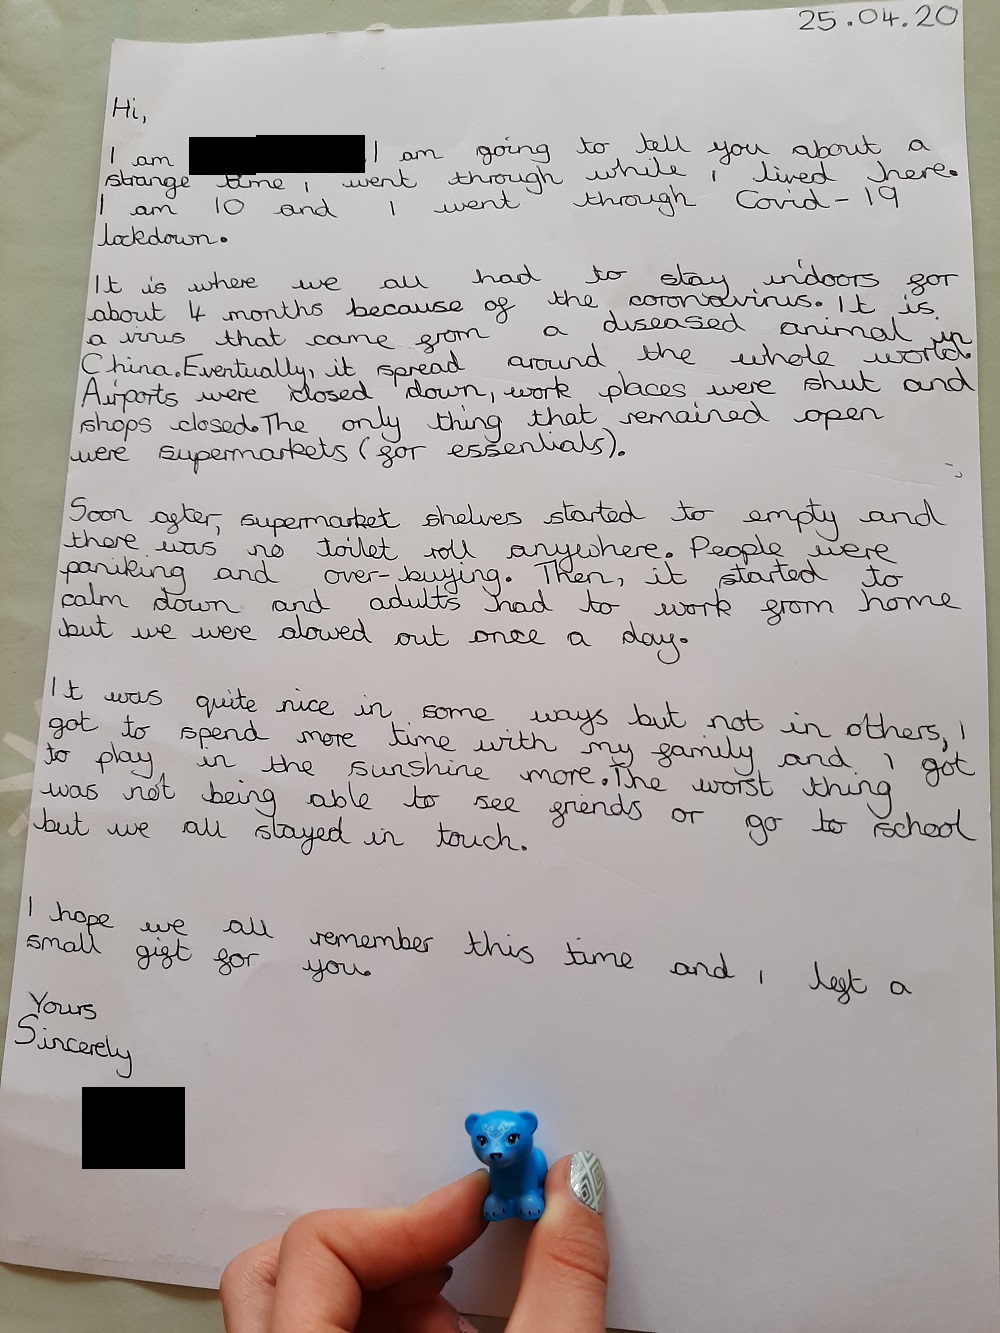 25.04.20
Hi,
I am I am going to tell you about a
strange time i went through while i lived here.
I am 10 and I went through Covid-19
lockdown.
It is where we all had to stay indoors for
about 4 months because of the coronavirus. It is
a virus that came from a diseased animal in
China. Eventually, it spread around the whole world.
Airports were closed down, work places were shut and
shops closed. The only thing that remained open
were supermarkets (for essentials).
Soon after, supermarket shelves started to empty and
there was no toilet roll anywhere. People were
paniking and over-buying. Then, it started to
calm down and adults had to work from home
but we were alowed out once a day.
It was quite nice in some ways but not in others, I
got to spend more time with my family and i got
to play in the sunshine more. The worst thing
was not being able to see friends or go to school
but we all stayed in touch.
I hope we all remember this time and i left a
small gift for you.
Yours
Sincerely